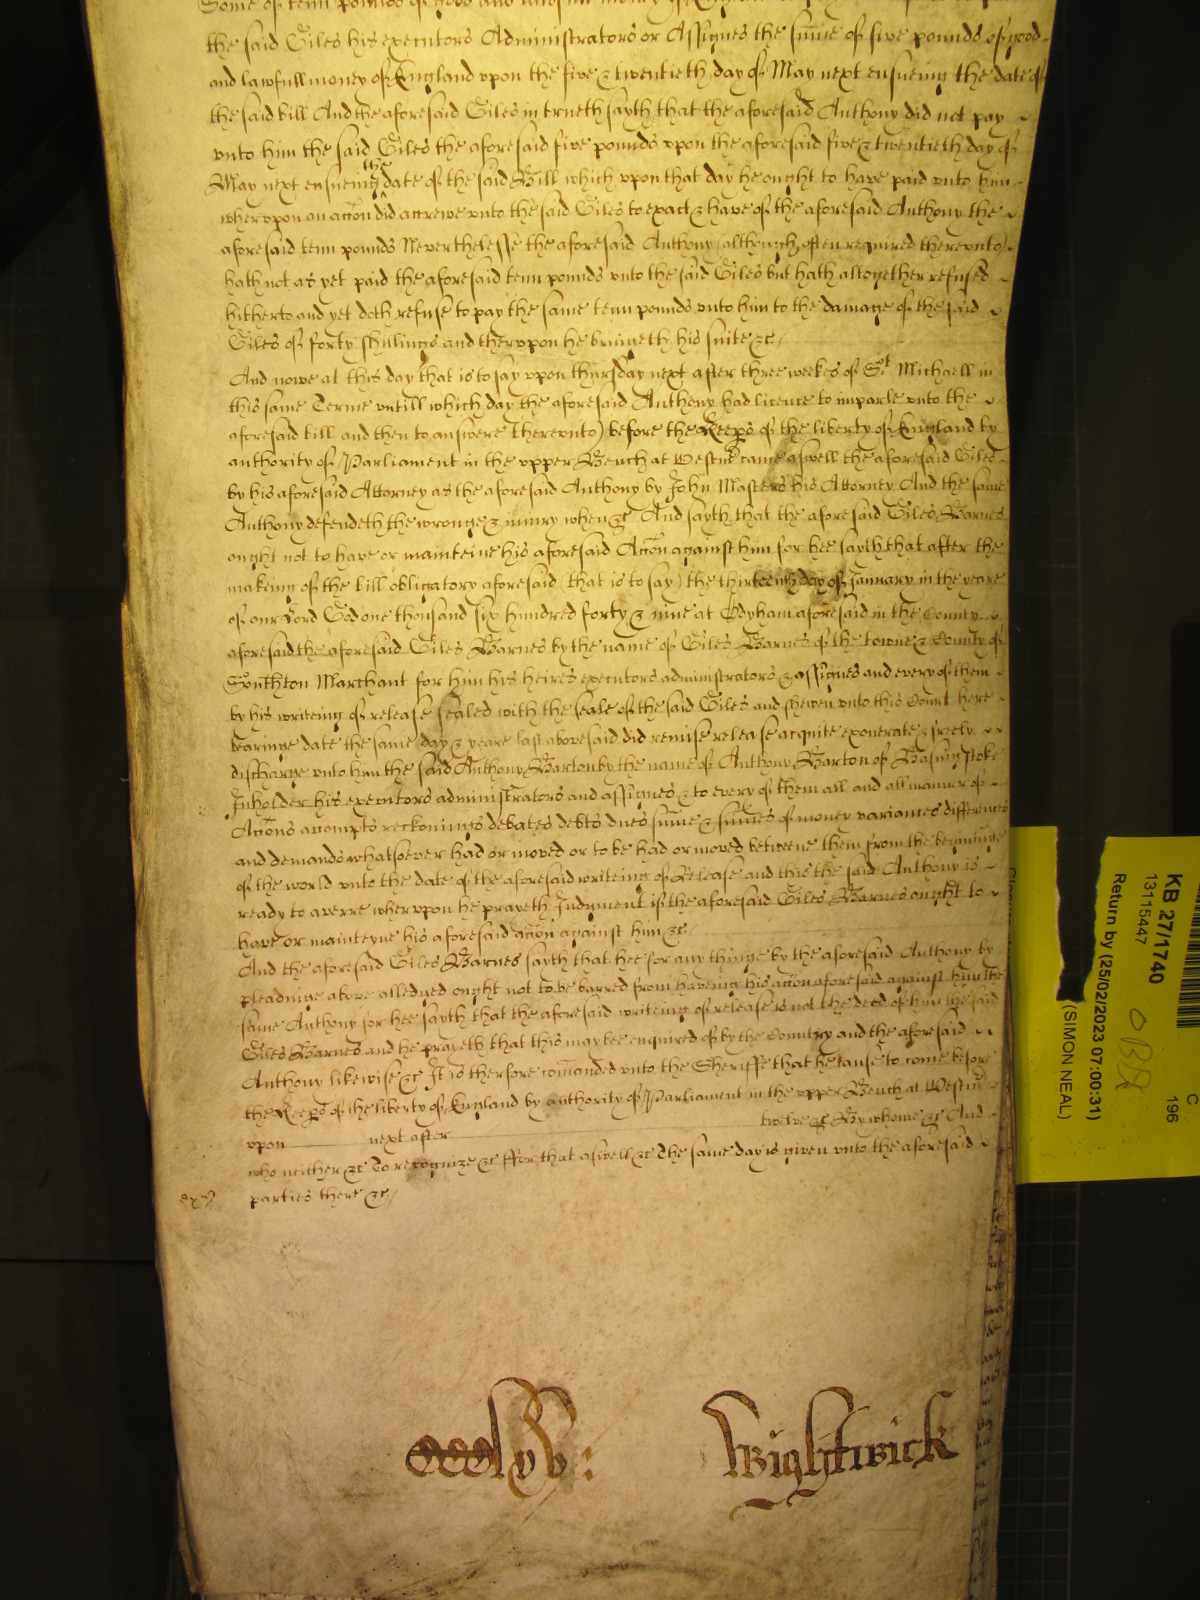 Some of tenn pounds of good and lawfull money of England
the said Giles his executors Administrators or Assignes the sume of five pounds of good
and lawfull money of England vpon the five & twentieth day of May next ensueing the date of
the said bill And the aforesaid Giles in trueth sayth that the aforesaid Anthony did not pay
vnto him the said Giles the aforesaid five pounds vpon the aforesaid five & twentieth day of
May next ensueing the date of the said Bill which vpon that day he ought to have paid vnto him
whervpon an accon did accrewe vnto the said Giles to exact & have of the aforesaid Anthony the
aforesaid tenn pounds Neverthelesse the aforesaid Anthony (although often required therevnto)
hath not as yet paid the aforesaid tenn pounds vnto the said Giles but hath altogether refused
hitherto and yet doth refuse to pay the same tenn pounds vnto him to the damage of the said
Giles of forty shillings and thervpon he bringeth his suite &c
And nowe at this day that is to say vpon Thursday next after three weekes of St Michaell in
this same Terme vntill which day the aforesaid Anthony had licence to imparle vnto the
aforesaid bill and then to answere therevnto) before the Keeps of the liberty of England by
authority of Parliament in the vpper Bench at Westm came aswell the aforesaid Giles
by his aforesaid Attorney as the aforesaid Anthony by John Masters his Attorney And the same
Anthony defendeth the wronge & iniury when &c And sayth that the aforesaid Giles Barnes
ought not to have or mainteine his aforesaid Accon against him for hee sayth that after the
makeing of the bill obligatory aforesaid (that is to say) the thirteenth day of January in the yeare
of our Lord God one thousand six hundred forty & nine at Odyham aforesaid in the County
aforesaid the aforesaid Giles Barnes by the name of Giles Barnes of the towne & County of
Southton Marchant for him his heires executors administrators & assignes and every of them
by his writeing of release sealed with the seale of the said Giles and shewen vnto this Court here
beareinge date the same day & yeare last abovesaid did remise release acquite exonerate & freely
discharge vnto him the said Anthony Barton by the name of Anthony Barton of Basingstoke
Inholder his executors administrators and assignes & to every of them all and all manner of
Accons accompts reckonings debates debts dues sume & sumes of money variances differences
and demands whatsoever had or moved or to be had or moved betweene them from the begininge
of the world vnto the date of the aforesaid writeing of Release and this the said Anthony is
ready to averre whervpon he prayeth Judgment if the aforesaid Giles Barnes ought to
have or mainteyne his aforesaid accon against him &c
And the aforesaid Giles Barnes sayth that hee for any thinge by the aforesaid Anthony by
pleadinge above alledged ought not to be barred from haveing his accon aforesaid against him the
same Anthony for hee sayth that the aforesaid writeing of release is not the deed of him the said
Giles Barnes and he prayeth that this may bee enquired of by the Country and the aforesaid
Anthony likewise &c It is therfore comanded vnto the Sheriffe that he cause to come before
the Keeps of the liberty of England by authority of Parliament in the vpper Bench at Westm
vpon next after twelve &c By whome &c And
who neither &c To recognize &c ffor that aswell &c The same day is given vnto the aforesaid
parties there &c
Wightwick
KB 27/1740
13115447
Return by (25/02/2023 07:00:31)
(SIMON NEAL)
C
196